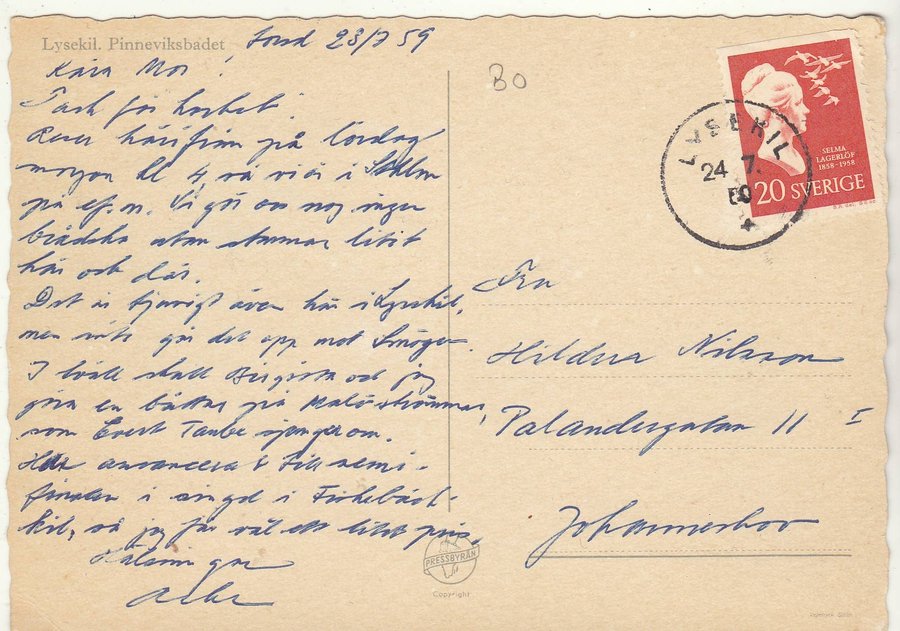 Lysekil. Pinneviksbadet
23/7 59
Kära Mor!
Tack för kortet!
Reser härifrån på lördag
morgon kl 4 så vi är i Sthlm
på ef.m. Vi gör oss nog ingen
brådska utan stannar litet
här och där.
Det är tjusigt även här i Lysekil,
men inte går det opp mot Smögen.
I kväll skall Birgitta och jag
göra en båttur på Malö strömmar,
som Evert Taube sjunger om.
Har avancerat till semi-
finalen i singel i Fiskebäck-
kil, så jag får väl ett litet pris.
Hälsningar
80
LYSEKIL
24. 7.
59
SELMA
LAGERLÖF
1858-1958
20 SVERIGE
Fru
Hildur Nilsson
Palandergatan 11 I
Johanneshov
PRESSBYRÅN
Copyright